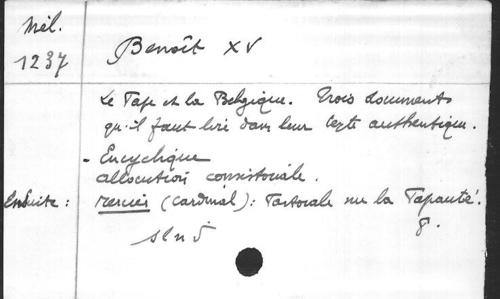 Mél.
1237
Benoît XV
Le Pape et la Belgique. Trois documents
qu'il faut lire dans leur texte authentique.
- Encyclique
allocution consistoriale.
Ensuite : Mercier (Cardinal) : Pastorale sur la Papauté.
8.